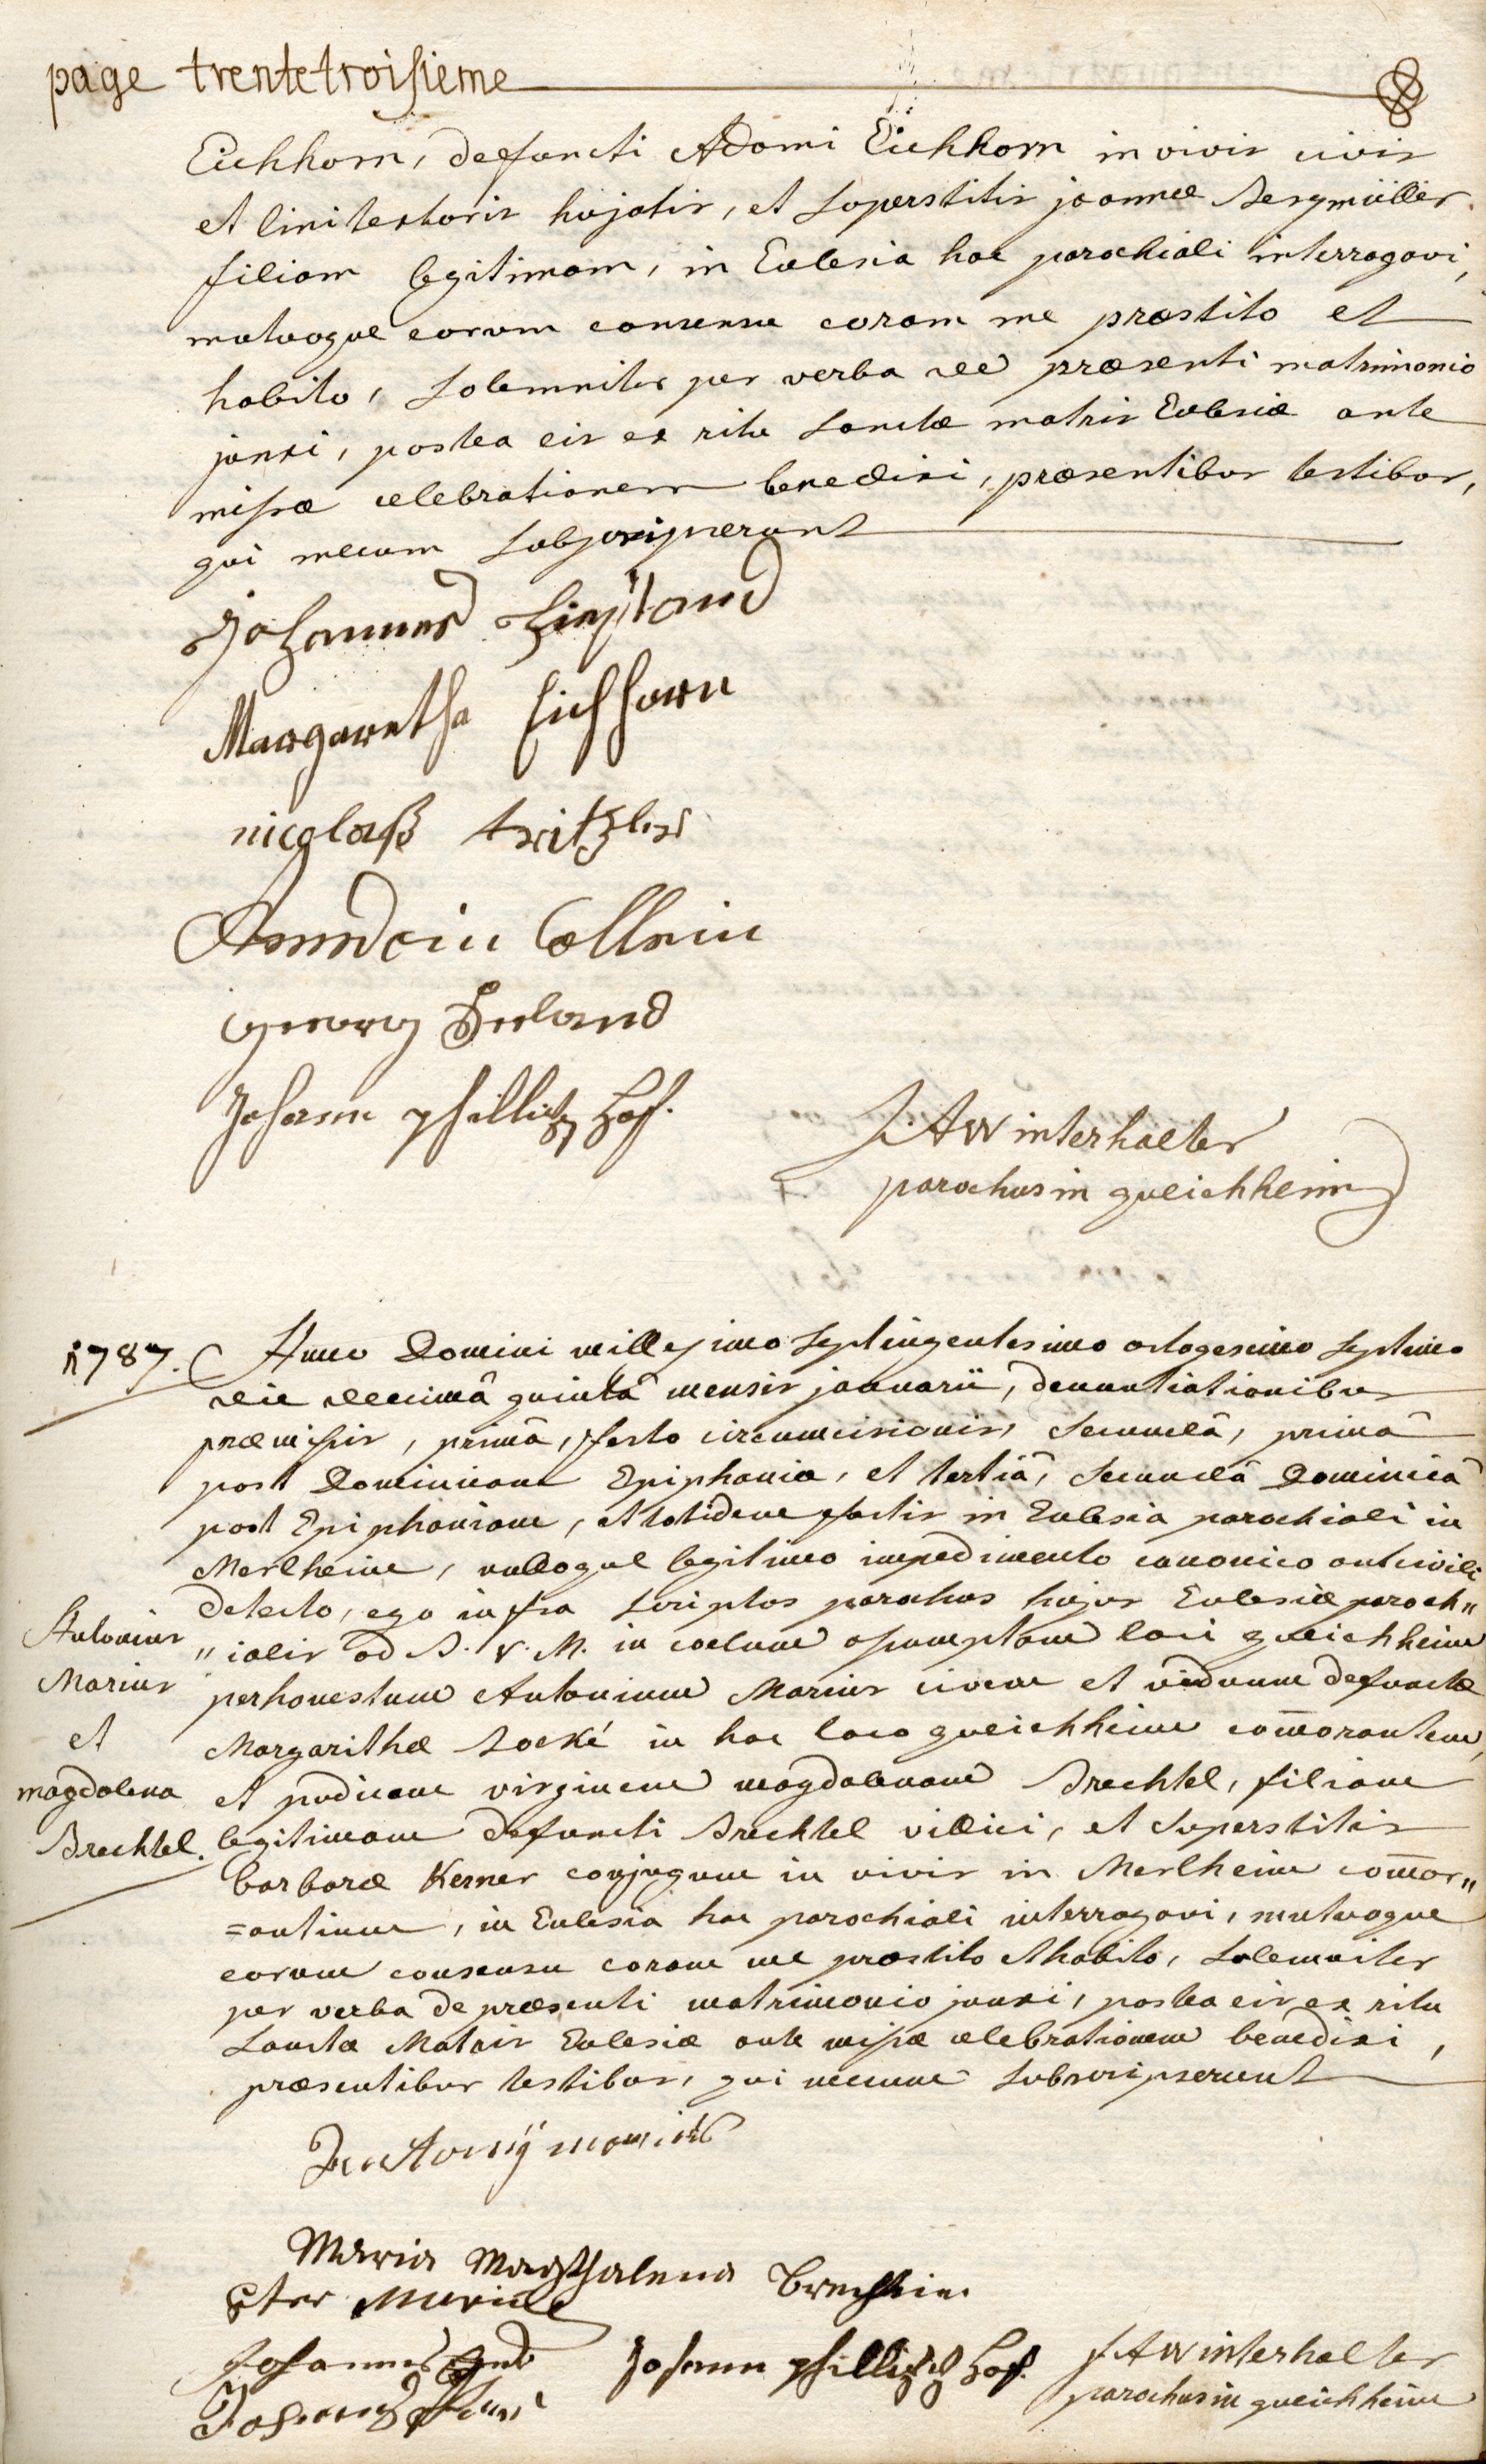 page trentetroisieme
Eichhorn, defuncti Adami Eichhorn in vivis civis
et linitextoris hujatis, et superstitis joannæ Bergmüller
filiam legitimam, in Ecclesia hac parochiali interrogavi,
mutuoque eorum consensu coram me præstito et
habito, solemniter per verba de præsenti matrimonio
junxi, postea eis ex ritu Sanctæ matris Ecclesiæ ante
missæ celebrationem benedixi, præsentibus testibus,
qui mecum subscripserunt
Johannes
Margaretha Eichhorn
nicolaß tritzler
georg
Johann phillipp Hof.
J: A Winterhalter
parochus in queichheim
1787. Anno Domini millesimo septingentesimo octogesimo septimo
die decimâ quintâ mensis januarii, denuntiationibus
præmissis, primâ, festo circumcisionis, secundâ, primâ
post Dominicam Epiphaniæ, et tertiâ, secundâ Dominicâ
post Epiphaniam, et totidem factis in Ecclesia parochiali in
Merlheim, nulloque legitimo impedimento canonico aut civili
detecto, ego infra scriptus parochus hujus Ecclesiæ paroch"
"ialis ad B. V. M. in cœlum assumptam loci queichheim
perhonestum Antonium Marius civem et viduum defunctæ
Margarithæ Socké in hac loco queichheim com̄orantem,
et pudicam virginem magdalenam Brechtel, filiam
legitimam defuncti Brechtel villici, et superstitis
barbaræ Kerner conjugum in vivis in Merlheim com̄or"
=antium, in Ecclesia hac parochiali interrogavi, mutuoque
eorum consensu coram me præstito et habito, solemniter
per verba de præsenti matrimonio junxi, postea eis ex ritu
Sanctæ Matris Ecclesiæ ante missæ celebrationem benedixi,
præsentibus testibus, qui mecum subscripserunt
Antonius
Marius
et
magdalena
Brechtel.
Antonÿ marius
Maria Magthalena brechtlin
Johannes
Johann phillipp Hof.
J A Winterhalter
parochus in queichheim